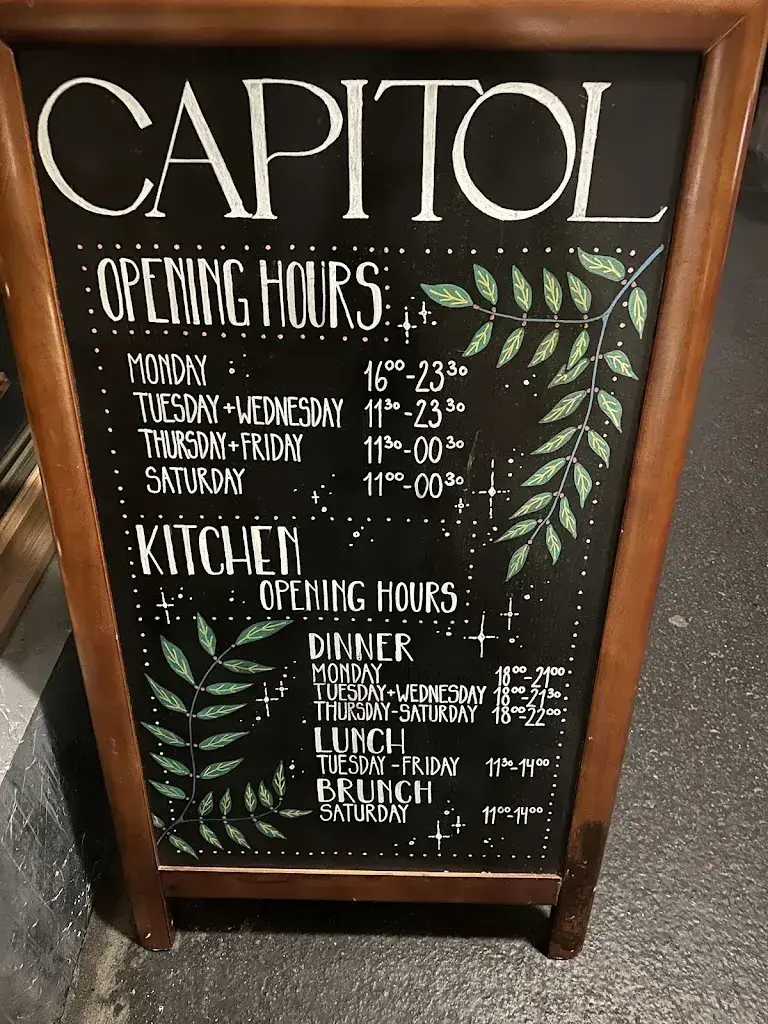 CAPITOL
OPENING HOURS
MONDAY 16⁰⁰-23³⁰
TUESDAY+WEDNESDAY 11³⁰-23³⁰
THURSDAY+FRIDAY 11³⁰-00³⁰
SATURDAY 11⁰⁰-00³⁰
KITCHEN
OPENING HOURS
DINNER
MONDAY 18⁰⁰-21⁰⁰
TUESDAY+WEDNESDAY 18⁰⁰-21³⁰
THURSDAY-SATURDAY 18⁰⁰-22⁰⁰
LUNCH
TUESDAY-FRIDAY 11³⁰-14⁰⁰
BRUNCH
SATURDAY 11⁰⁰-14⁰⁰